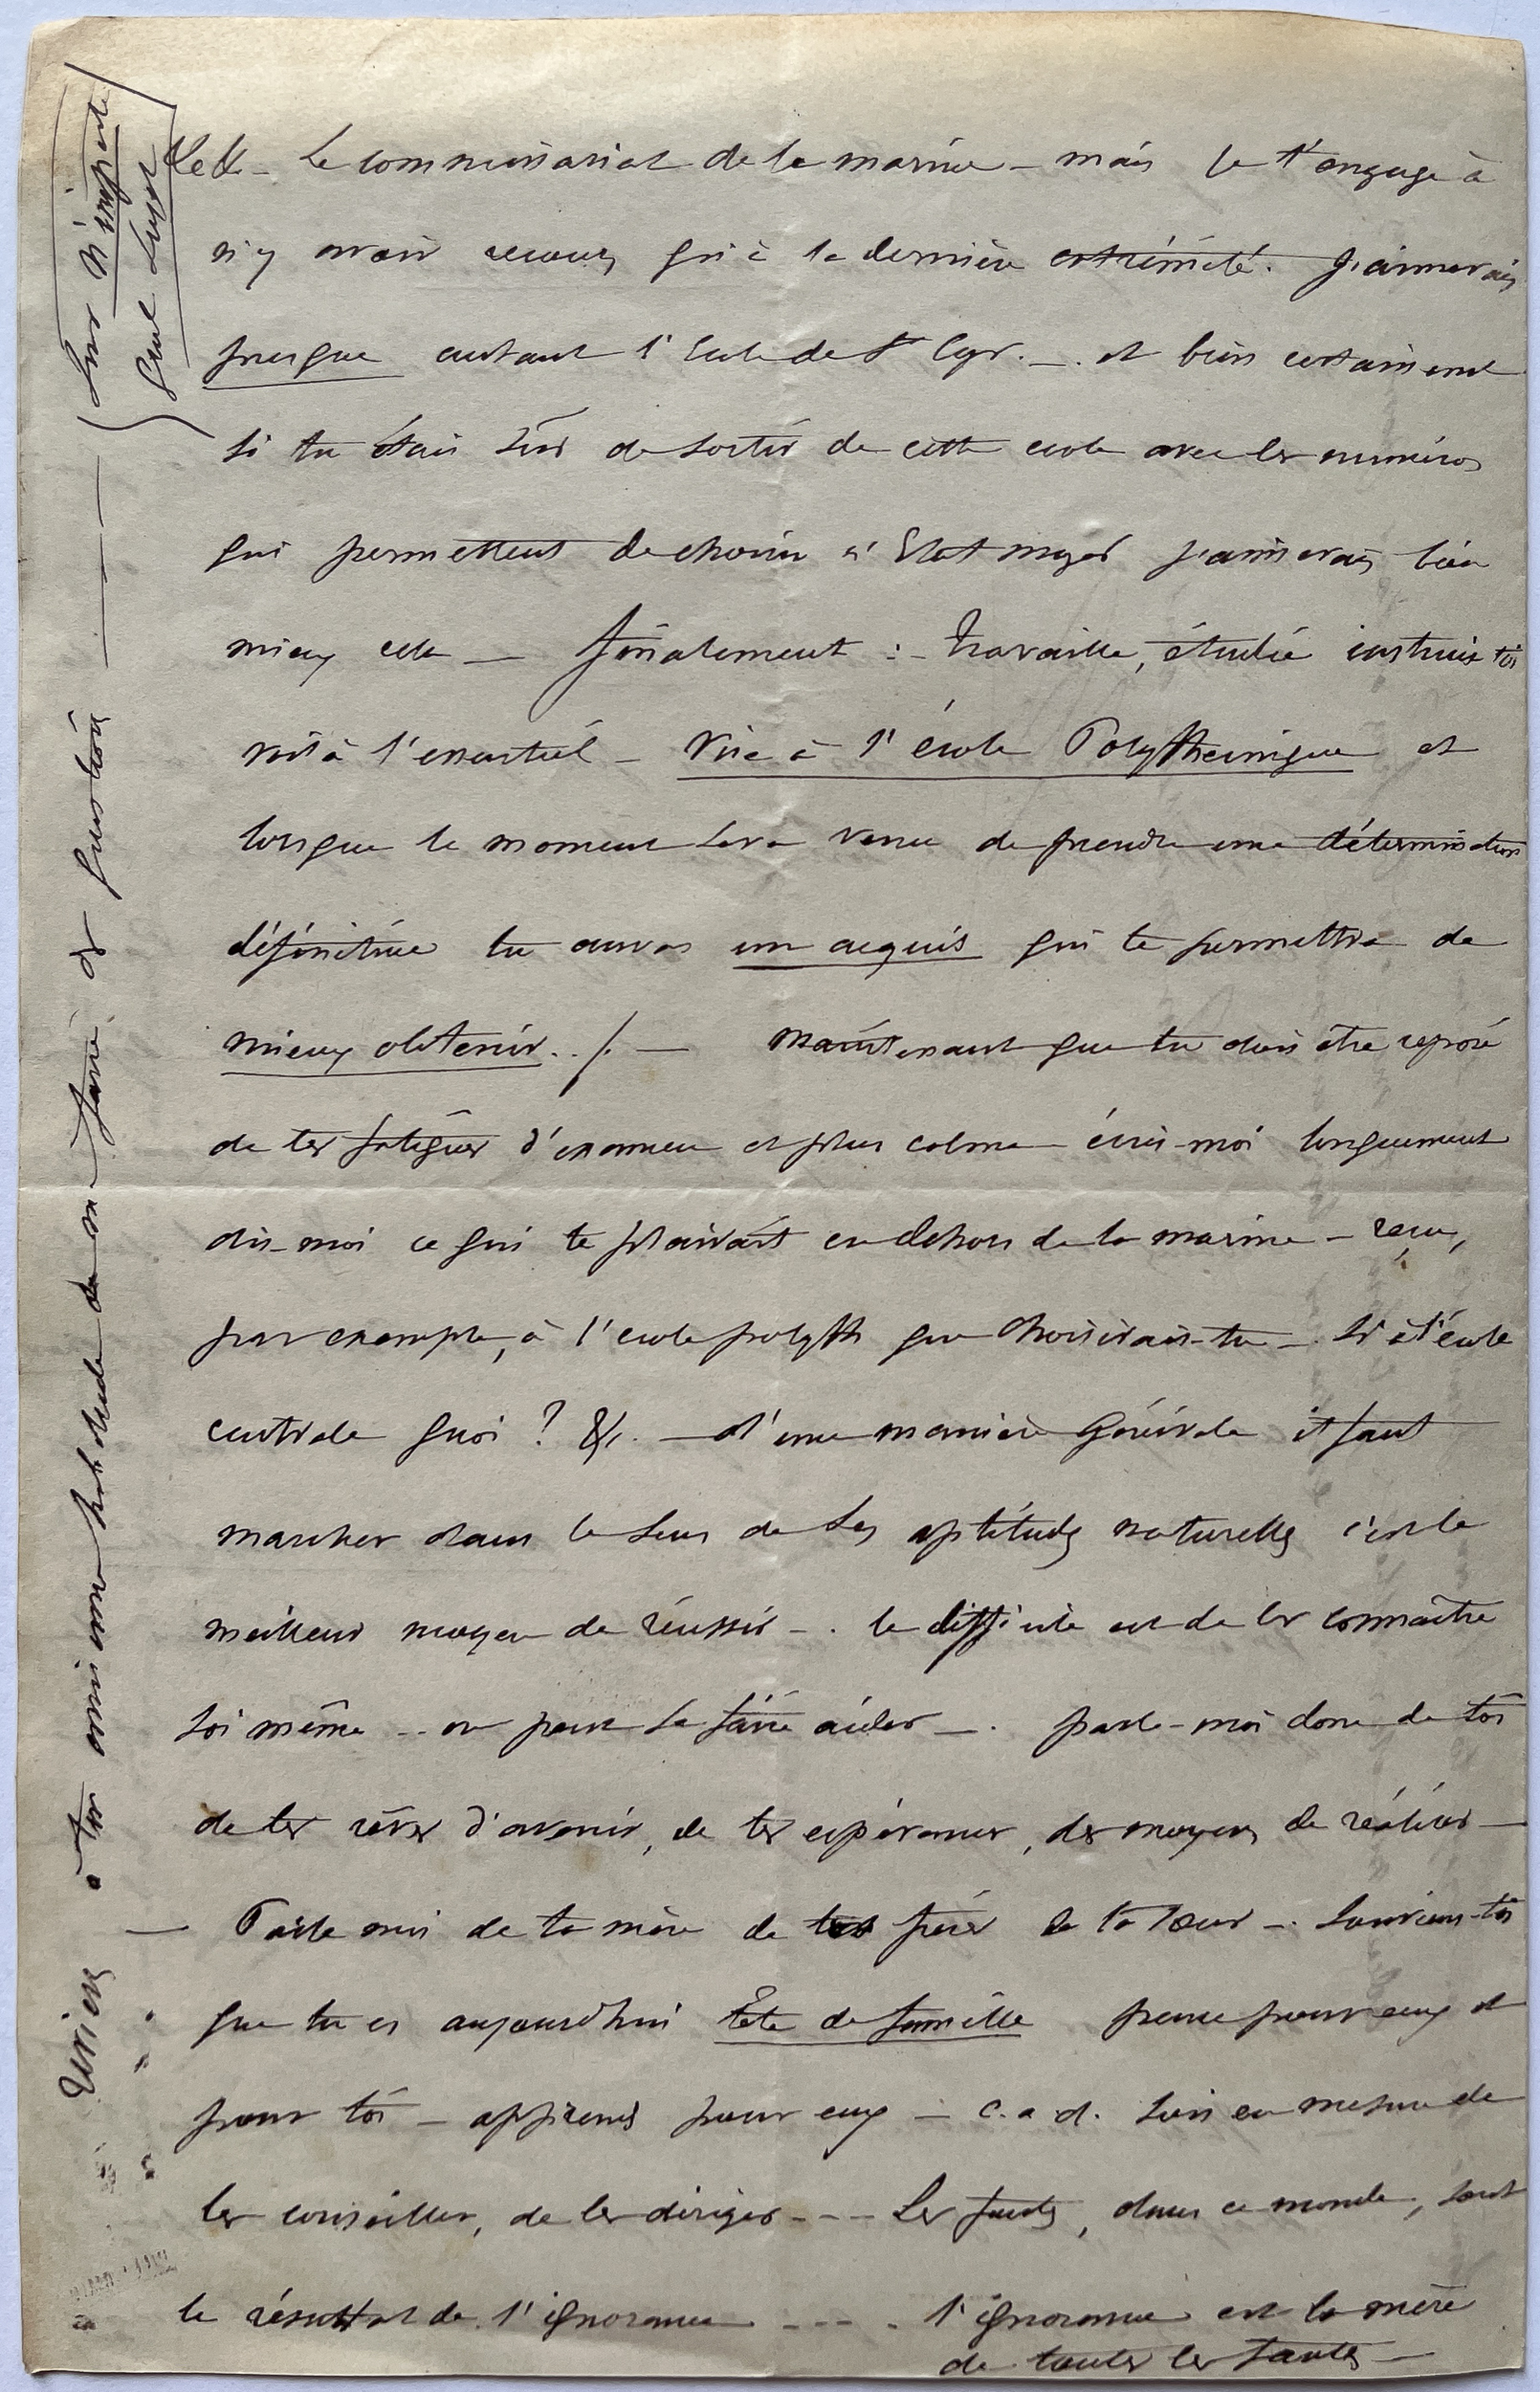 Le commissariat de la marine – mais je t'engage à
n'y avoir recours qu'à la dernière extrémité. J'aimerais
presque autant l'Ecole de St Cyr. – . et bien certainement
si tu étais sûr de sortir de cette ecole avec les numéros
qui permettent de choisir l'Etat major j'aimerais bien
mieux cela – finalement : – travaille, étudie instruis toi
voilà l'essentiel – Vise à l'école Polythecnique et
lorsque le moment sera venu de prendre une détermination
définitive tu auras un acquis qui te permettra de
mieux obtenir. . /. — Maintenant que tu dois être reposé
de tes fatigues d'examen et plus calme – écris-moi longuement
dis-moi ce qui te plairait en dehors de la marine – reçu,
par exemple, à l'ecole polyth que choisirais-tu – . Si à l'école
centrale quoi ? &. — d'une manière générale il faut
marcher dans le sens de ses aptitudes naturelles c'est le
meilleur moyen de réussir – . le difficile est de les connaître
soi même – on peut se faire aider – . parle-moi donc de toi
de tes rêves d'avenir, de tes espérances, des moyens de réaliser –
— Parle moi de ta mère de tes frères de ta sœur – . Souviens-toi
que tu es aujourd'hui tête de famille pense pour eux et
pour toi – apprends pour eux – c. a. d. sois en mesure de
les conseiller, de les diriger - - - Les fautes, dans ce monde, sont
le résultat de l'ignorance - - - . l'ignorance est la mère
de toutes les fautes –
écriens à ton ami une habitude de me faire des questions —— —— { sur n'importe
quel sujet